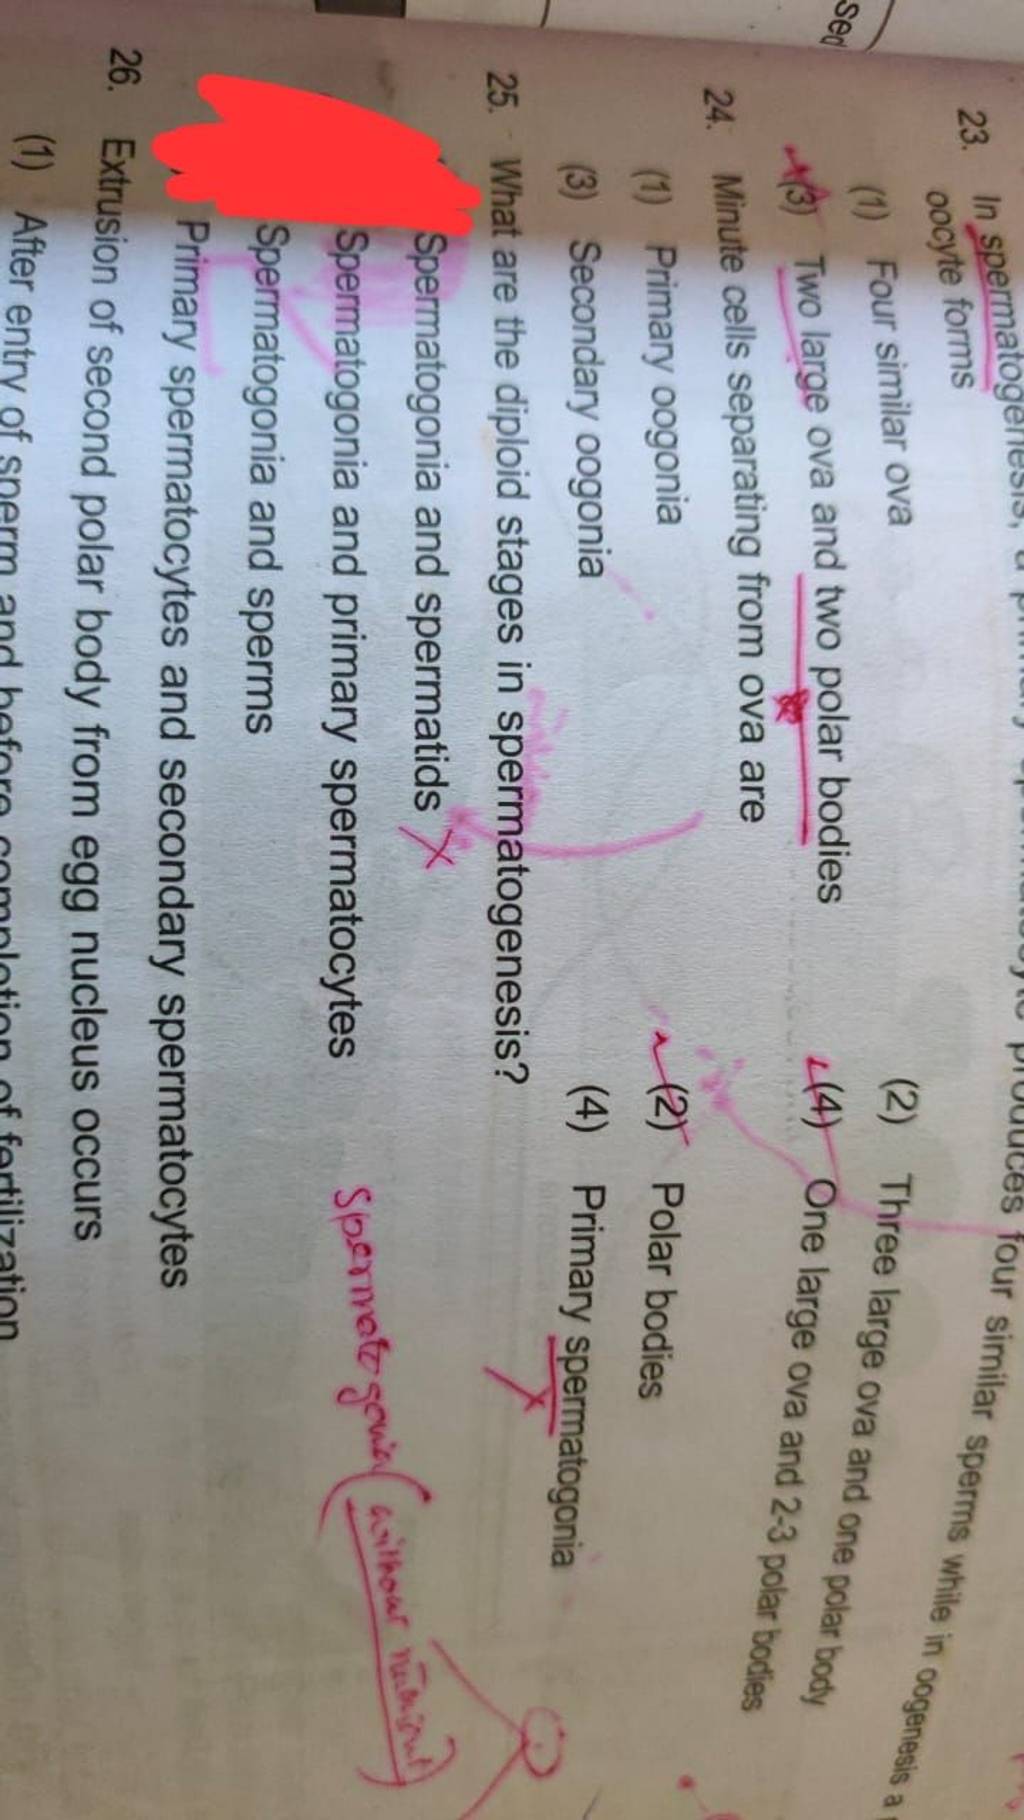 sed
23. In spermatogenesis, a primary spermatocyte produces four similar sperms while in oogenesis a
oocyte forms
(1) Four similar ova
(2) Three large ova and one polar body
(3) Two large ova and two polar bodies
(4) One large ova and 2-3 polar bodies
24. Minute cells separating from ova are
(1) Primary oogonia
(2) Polar bodies
(3) Secondary oogonia
(4) Primary spermatogonia
25. What are the diploid stages in spermatogenesis?
Spermatogonia and spermatids
Spermatogonia and primary spermatocytes
Spermatogonia
Spermatogonia and sperms
Primary spermatocytes and secondary spermatocytes
26. Extrusion of second polar body from egg nucleus occurs
(1) After entry of sperm and before completion of fertilization